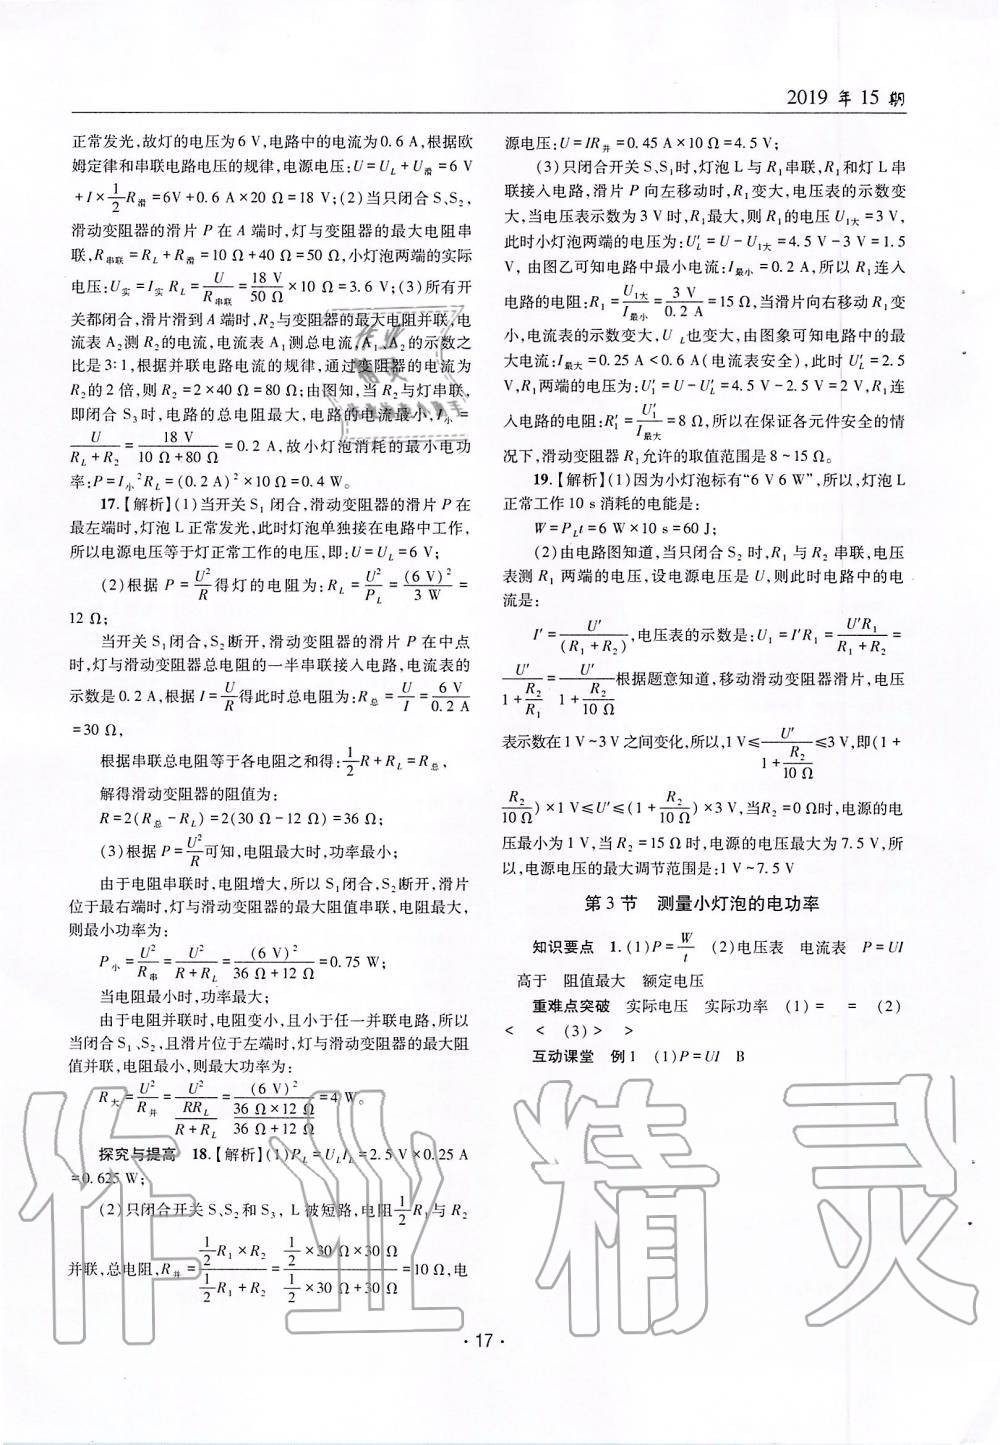 2019 年 15 期
正常发光,故灯的电压为6 V,电路中的电流为0.6 A,根据欧
姆定律和串联电路电压的规律,电源电压:U=U_L+U_滑=6 V
+I×1/2R_滑=6V+0.6 A×20 Ω=18 V;(2)当只闭合 S、S₂,
滑动变阻器的滑片 P 在 A 端时,灯与变阻器的最大电阻串
联,R_串联=R_L+R_滑=10 Ω+40 Ω=50 Ω,小灯泡两端的实际
电压:U_实=I_实 R_L=U/R_串联=18 V/50 Ω×10 Ω=3.6 V;(3)所有开
关都闭合,滑片滑到 A 端时,R₂与变阻器的最大电阻并联,电
流表 A₂测 R₂的电流,电流表 A₁测总电流,A₁、A₂的示数之
比是3:1,根据并联电路电流的规律,通过变阻器的电流为
R₂的2倍,则 R₂=2×40 Ω=80 Ω;由图知,当 R₂与灯串联,
即闭合 S₃时,电路的总电阻最大,电路的电流最小,I_小=
U/(R_L+R₂)=18 V/(10 Ω+80 Ω)=0.2 A,故小灯泡消耗的最小电功
率:P=I_小²R_L=(0.2 A)²×10 Ω=0.4 W。
17.【解析】(1)当开关 S₁ 闭合,滑动变阻器的滑片 P 在
最左端时,灯泡 L 正常发光,此时灯泡单独接在电路中工作,
所以电源电压等于灯正常工作的电压,即:U=U_L=6 V;
(2)根据 P=U²/R得灯的电阻为:R_L=U²/P_L=(6 V)²/3 W=
12 Ω;
当开关 S₁闭合,S₂断开,滑动变阻器的滑片 P 在中点
时,灯与滑动变阻器总电阻的一半串联接入电路,电流表的
示数是0.2 A,根据 I=U/R得此时总电阻为:R_总=U/I=6 V/0.2 A
=30 Ω,
根据串联总电阻等于各电阻之和得:1/2R+R_L=R_总,
解得滑动变阻器的阻值为:
R=2(R_总-R_L)=2(30 Ω-12 Ω)=36 Ω;
(3)根据 P=U²/R可知,电阻最大时,功率最小;
由于电阻串联时,电阻增大,所以 S₁闭合,S₂断开,滑片
位于最右端时,灯与滑动变阻器的最大阻值串联,电阻最大,
则最小功率为:
P_小=U²/R_串=U²/(R+R_L)=(6 V)²/(36 Ω+12 Ω)=0.75 W;
当电阻最小时,功率最大;
由于电阻并联时,电阻变小,且小于任一并联电路,所以
当闭合 S₁、S₂,且滑片位于左端时,灯与滑动变阻器的最大阻
值并联,电阻最小,则最大功率为:
R_大=U²/R_并=U²/(RR_L/(R+R_L))=(6 V)²/(36 Ω×12 Ω/(36 Ω+12 Ω))=4 W。
探究与提高 18.【解析】(1)P_L=U_LI_L=2.5 V×0.25 A
=0.625 W;
(2)只闭合开关 S、S₂和 S₃, L 被短路,电阻1/2R₁与 R₂
并联,总电阻,R_并=(1/2R₁×R₂)/(1/2R₁+R₂)=(1/2×30 Ω×30 Ω)/(1/2×30 Ω+30 Ω)=10 Ω,电
源电压:U=IR_并=0.45 A×10 Ω=4.5 V;
(3)只闭合开关 S、S₁时,灯泡 L 与 R₁串联,R₁和灯 L 串
联接入电路,滑片 P 向左移动时,R₁变大,电压表的示数变
大,当电压表示数为3 V时,R₁最大,则 R₁的电压 U₁大=3 V,
此时小灯泡两端的电压为:U′_L=U-U₁大=4.5 V-3 V=1.5
V, 由图乙可知电路中最小电流:I_最小=0.2 A,所以 R₁连入
电路的电阻:R₁=U₁大/I_最小=3 V/0.2 A=15 Ω,当滑片向右移动 R₁变
小,电流表的示数变大,U_L也变大,由图象可知电路中的最
大电流:I_最大=0.25 A<0.6 A(电流表安全),此时 U′_L=2.5
V,R₁两端的电压为:U′₁=U-U′_L=4.5 V-2.5 V=2 V,R₁连
入电路的电阻:R′₁=U′₁/I_最大=8 Ω,所以在保证各元件安全的情
况下,滑动变阻器 R₁允许的取值范围是8~15 Ω。
19.【解析】(1)因为小灯泡标有“6 V 6 W”,所以,灯泡 L
正常工作10 s消耗的电能是:
W=P_Lt=6 W×10 s=60 J;
(2)由电路图知道,当只闭合 S₂ 时,R₁ 与 R₂ 串联,电压
表测 R₁ 两端的电压,设电源电压是 U,则此时电路中的电
流是:
I′=U′/(R₁+R₂),电压表的示数是:U₁=I′R₁=U′R₁/(R₁+R₂)=
U′/(1+R₂/R₁)=U′/(1+R₂/10 Ω)根据题意知道,移动滑动变阻器滑片,电压
表示数在1 V~3 V之间变化,所以,1 V≤U′/(1+R₂/10 Ω)≤3 V,即(1+
R₂/10 Ω)×1 V≤U′≤(1+R₂/10 Ω)×3 V,当R₂=0 Ω时,电源的电
压最小为1 V,当 R₂=15 Ω时,电源的电压最大为7.5 V,所
以,电源电压的最大调节范围是:1 V~7.5 V
第3节 测量小灯泡的电功率
知识要点 1.(1)P=W/t (2)电压表 电流表 P=UI
高于 阻值最大 额定电压
重难点突破 实际电压 实际功率 (1)= = (2)
< < (3)> >
互动课堂 例1 (1)P=UI B
· 17 ·
作业精灵